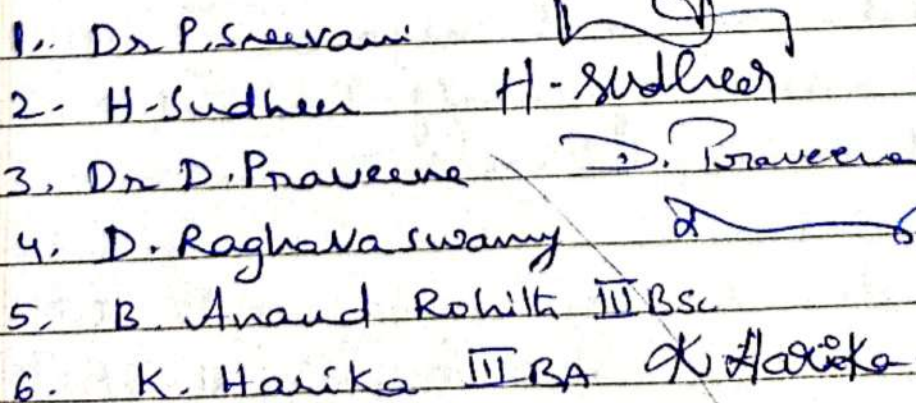 1. Dr P. Sreevani
2. H. Sudheer H. Sudheer
3. Dr D. Praveena D. Praveena
4. D. Raghavaswamy
5. B. Anand Rohith III BSc
6. K. Harika III BA K Harika